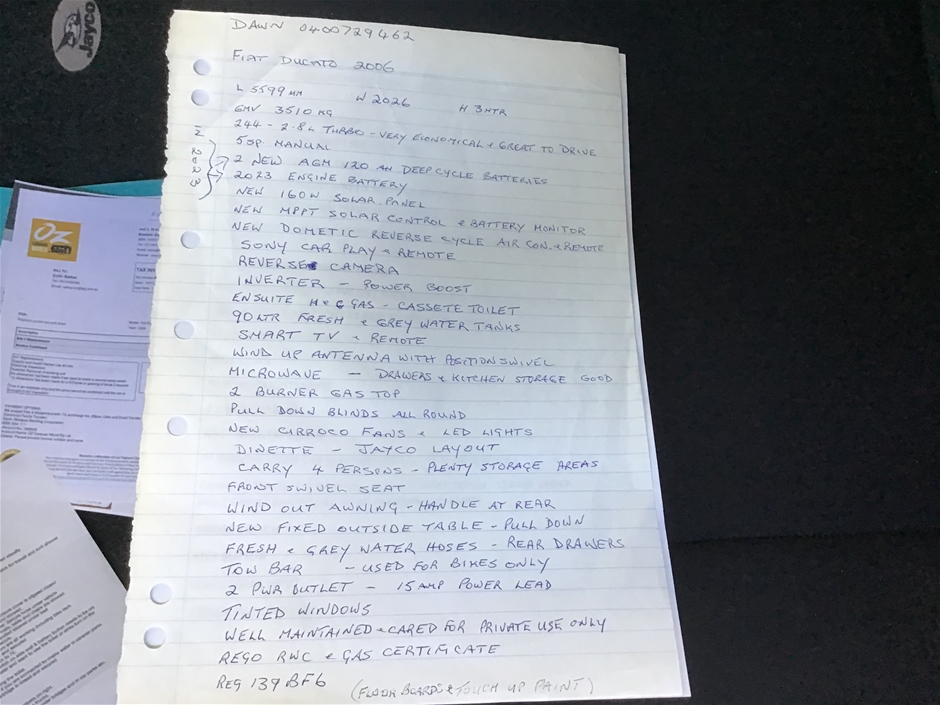 Jayco
DAWN 0400729462
FIAT DUCATO 2006
L 5599 MM W 2026 H 3MTR
GMV 3510 KG
244 - 2.8L TURBO - VERY ECONOMICAL & GREAT TO DRIVE
5SP MANUAL
IN 2023
2 NEW AGM 120 AH DEEPCYCLE BATTERIES
2023 ENGINE BATTERY
NEW 160W SOLAR PANEL
NEW MPPT SOLAR CONTROL & BATTERY MONITOR
NEW DOMETIC REVERSE CYCLE AIR CON. & REMOTE
SONY CAR PLAY & REMOTE
REVERSE CAMERA
INVERTER - POWER BOOST
ENSUITE H & C GAS - CASSETE TOILET
90 LTR FRESH & GREY WATER TANKS
SMART TV & REMOTE
WIND UP ANTENNA WITH POSITION SWIVEL
MICROWAVE - DRAWERS & KITCHEN STORAGE GOOD
2 BURNER GAS TOP
PULL DOWN BLINDS ALL ROUND
NEW CIRROCO FANS & LED LIGHTS
DINETTE - JAYCO LAYOUT
CARRY 4 PERSONS - PLENTY STORAGE AREAS
FRONT SWIVEL SEAT
WIND OUT AWNING - HANDLE AT REAR
NEW FIXED OUTSIDE TABLE - PULL DOWN
FRESH & GREY WATER HOSES - REAR DRAWERS
TOW BAR - USED FOR BIKES ONLY
2 PWR OUTLET - 15 AMP POWER LEAD
TINTED WINDOWS
WELL MAINTAINED & CARED FOR PRIVATE USE ONLY
REGO RWC & GAS CERTIFICATE
REG 139 BF6 (FLOOR BOARDS & TOUCH UP PAINT)
OZ
TAX INV